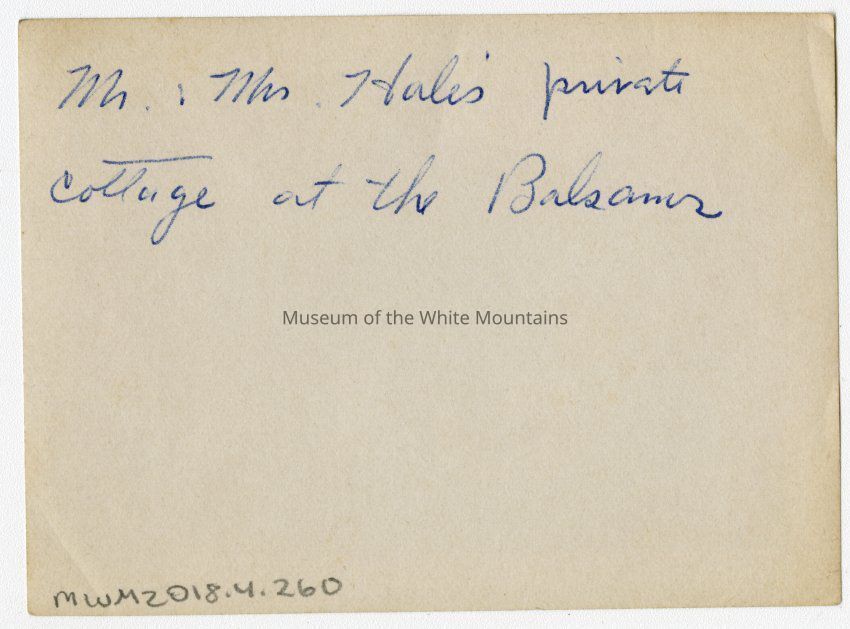 Mr. : Mrs. Hale's private
cottage at the Balsams
Museum of the White Mountains
MWM2018.4.260